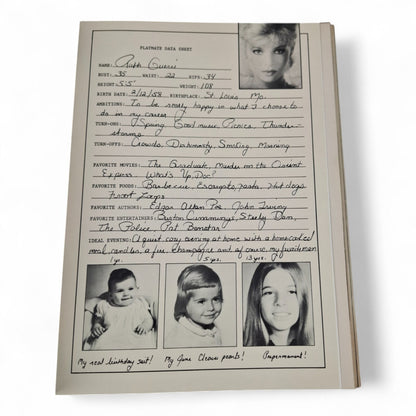 PLAYMATE DATA SHEET
NAME: Ruth Guerri
BUST: 35 WAIST: 22 HIPS: 34
HEIGHT: 5'5" WEIGHT: 108
BIRTH DATE: 2/12/58 BIRTHPLACE: St. Louis, Mo.
AMBITIONS: To be really happy in what I choose to
do in my career
TURN-ONS: Spring, Good music, Picnics, Thunder-
storms
TURN-OFFS: Crowds, Dishonesty, Smoking, Moaning
FAVORITE MOVIES: The Graduate, Murder on the Orient
Express, What's Up, Doc?
FAVORITE FOODS: Barbecue, Escargots, pasta, hot dogs
Froot Loops
FAVORITE AUTHORS: Edgar Allan Poe, John Irving
FAVORITE ENTERTAINERS: Burton Cummings, Steely Dan,
The Police, Pat Benatar
IDEAL EVENING: A quiet cozy evening at home with a home-cooked
meal, candles, a fire, champagne and, of course, my favorite man
1 yr. 5 yrs. 13 yrs.
My real birthday suit! My June Cleaver pearls! Impermanent!